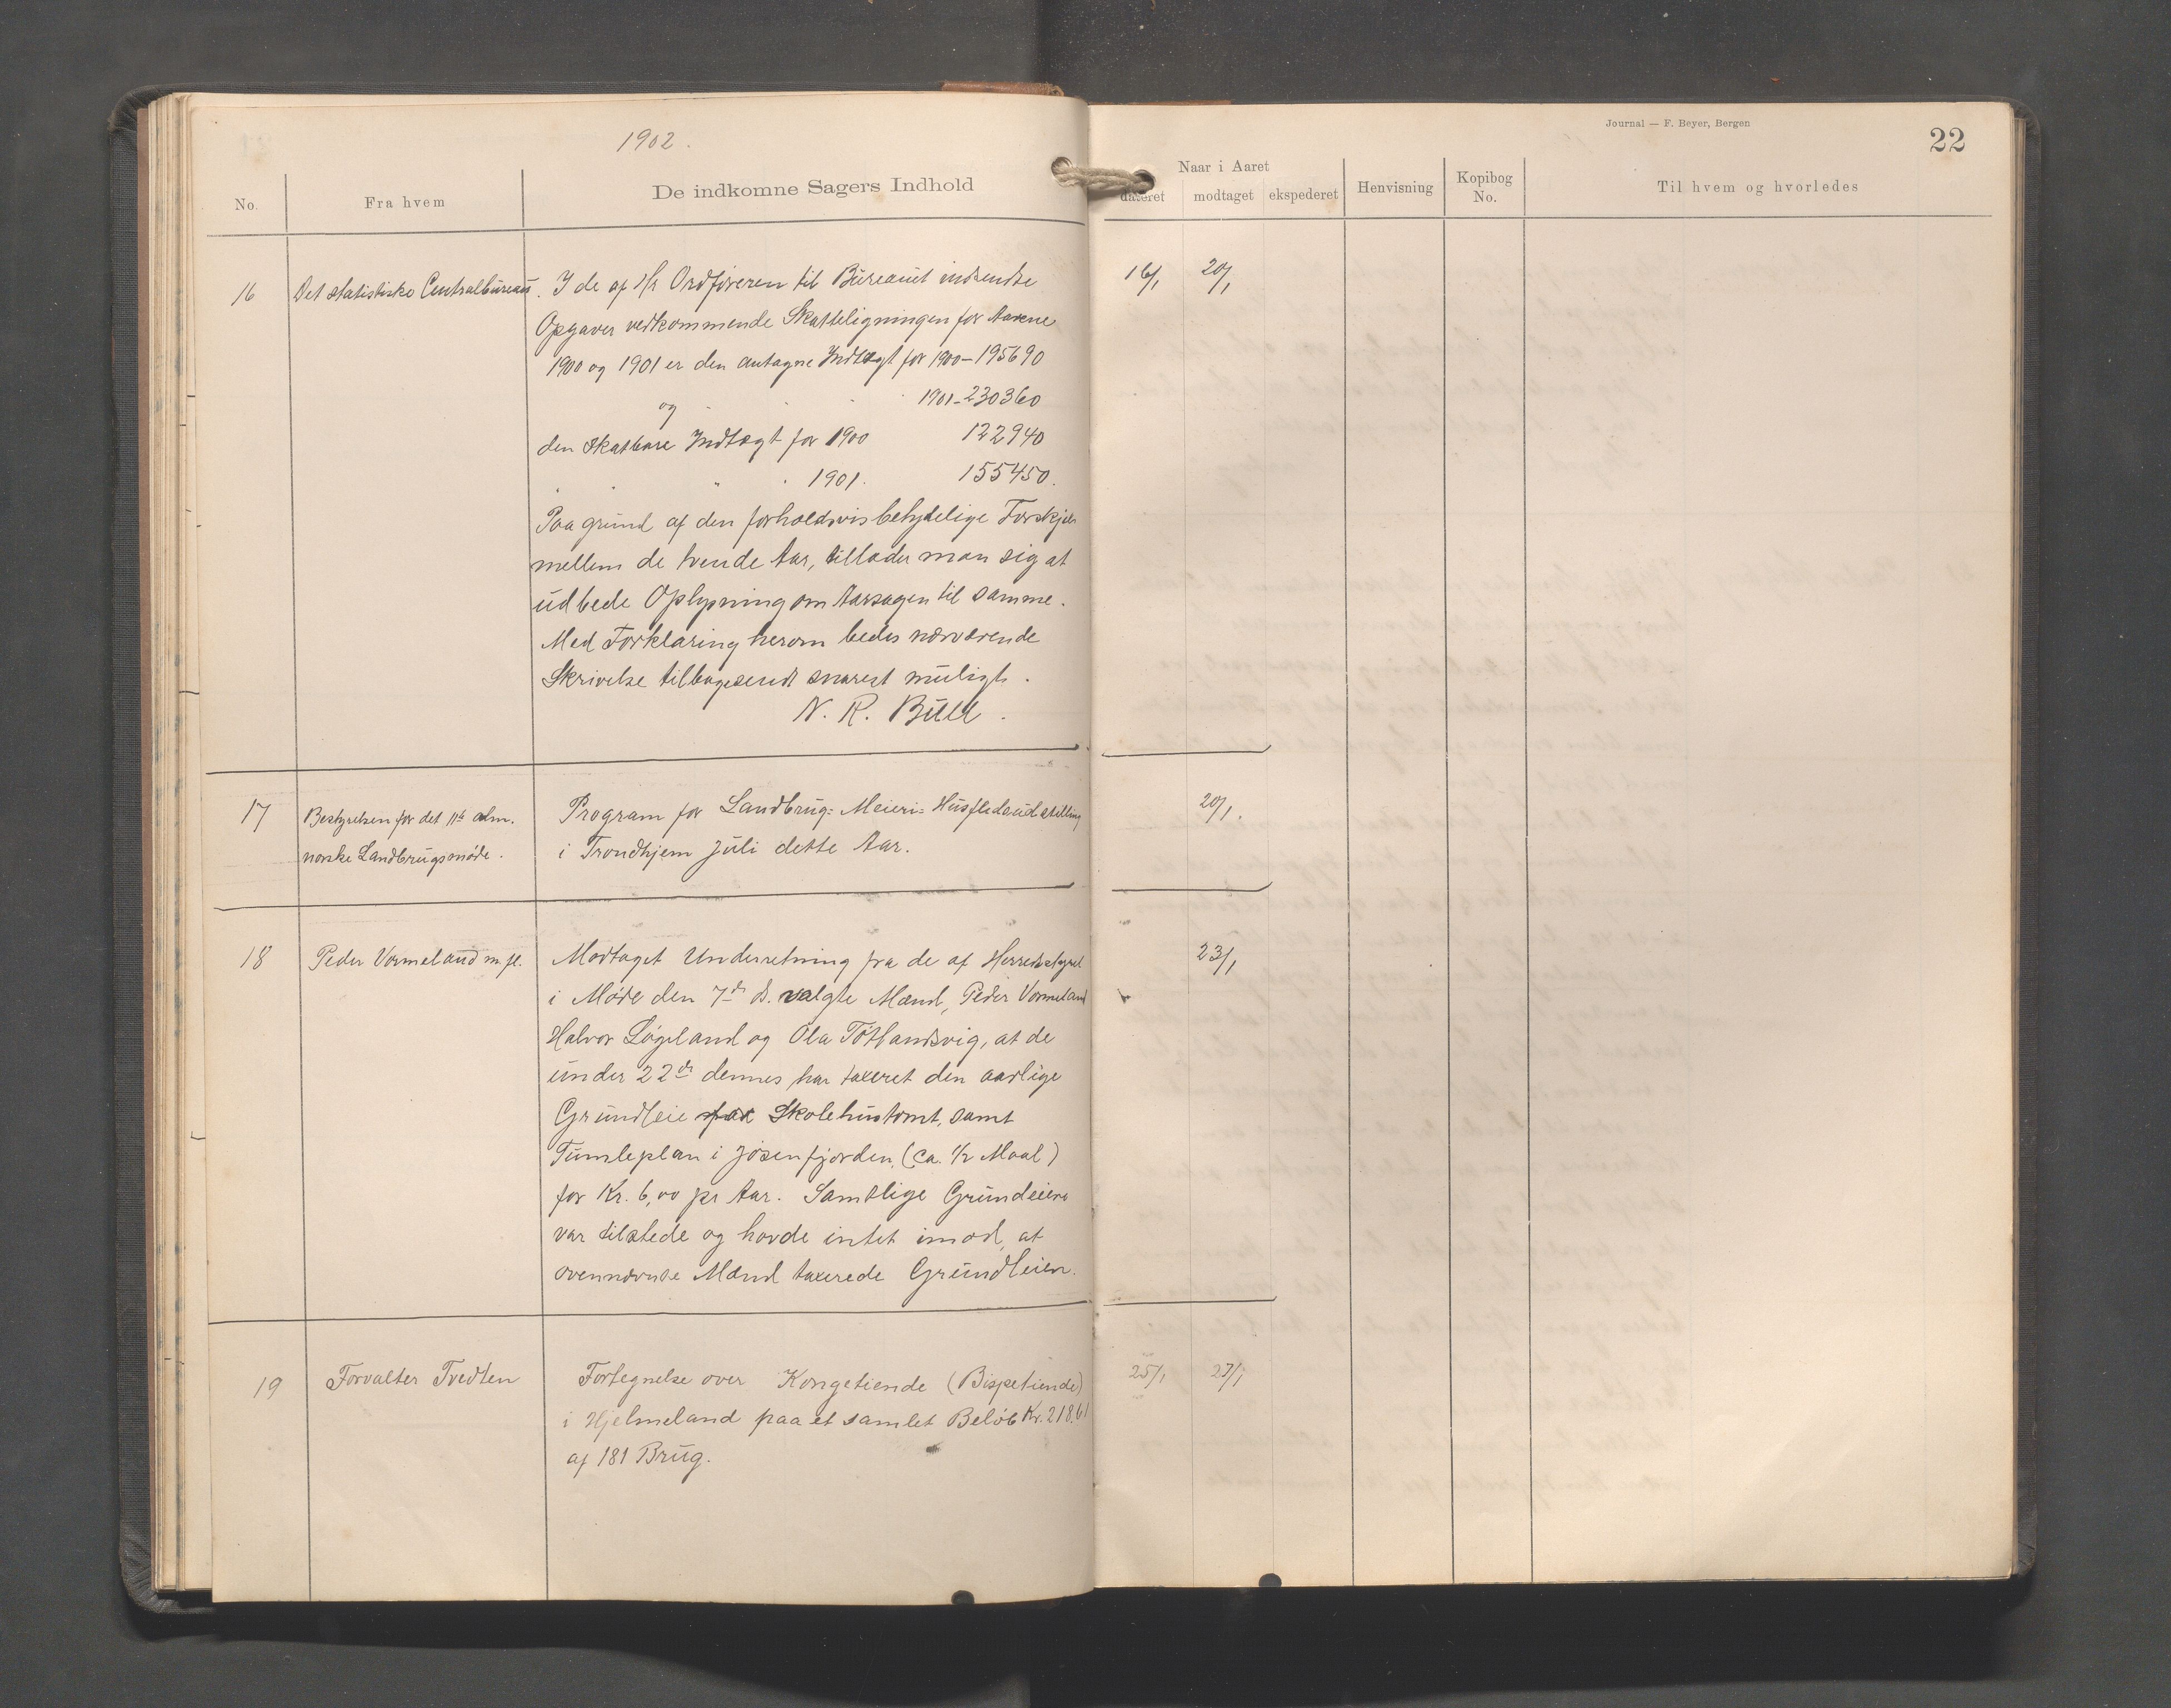 1902.
Journal — F. Beyer, Bergen
22
No.
Fra hvem
De indkomne Sagers Indhold
Naar i Aaret
dateret
modtaget
ekspederet
Henvisning
Kopibog No.
Til hvem og hvorledes
16
Det statistiske Centralbureau.
I de af Hr Ordføreren til Bureauet indsendte
16/1
20/1
Opgaver vedkommende Skatteligningen for Aarene
1900 og 1901 er den antagne Indtægt for 1900 – 195690
og 1901 – 230360
den skatbare Indtægt for 1900 122940
" " " " 1901. 155450.
Paa grund af den forholdsvis betydelige Forskjel
mellem de tvende Aar, tillader man sig at
udbede Oplysning om Aarsagen til samme.
Med Forklaring herom bedes nærværende
Skrivelse tilbagesendt snarest muligt.
N. R. Bull.
17
Bestyrelsen for det 11te alm.
norske Landbrugsmøde.
Program for Landbrug= Meieri= Husflidsudstilling
i Trondhjem Juli dette Aar.
20/1.
18
Peder Vormeland m. fl.
Modtaget Underretning fra de af Herredsstyret
23/1
i Møde den 7de ds. valgte Mænd, Peder Vormeland
Halvor Løgeland og Ola Tøtlandsvig, at de
under 22de dennes har taxeret den aarlige
Grundleie for Skolehustomt, samt
Tumleplan i Jøsenfjorden, (ca. 1/2 Maal)
for Kr. 6,00 pr Aar. Samtlige Grundeiere
var tilstede og havde intet imod, at
ovennævnte Mænd taxerede Grundleien.
19
Forvalter Tvedten
Fortegnelse over Kongetiende (Bispetiende)
25/1
27/1
i Hjelmeland paa et samlet Beløb Kr. 218.61
af 181 Brug.